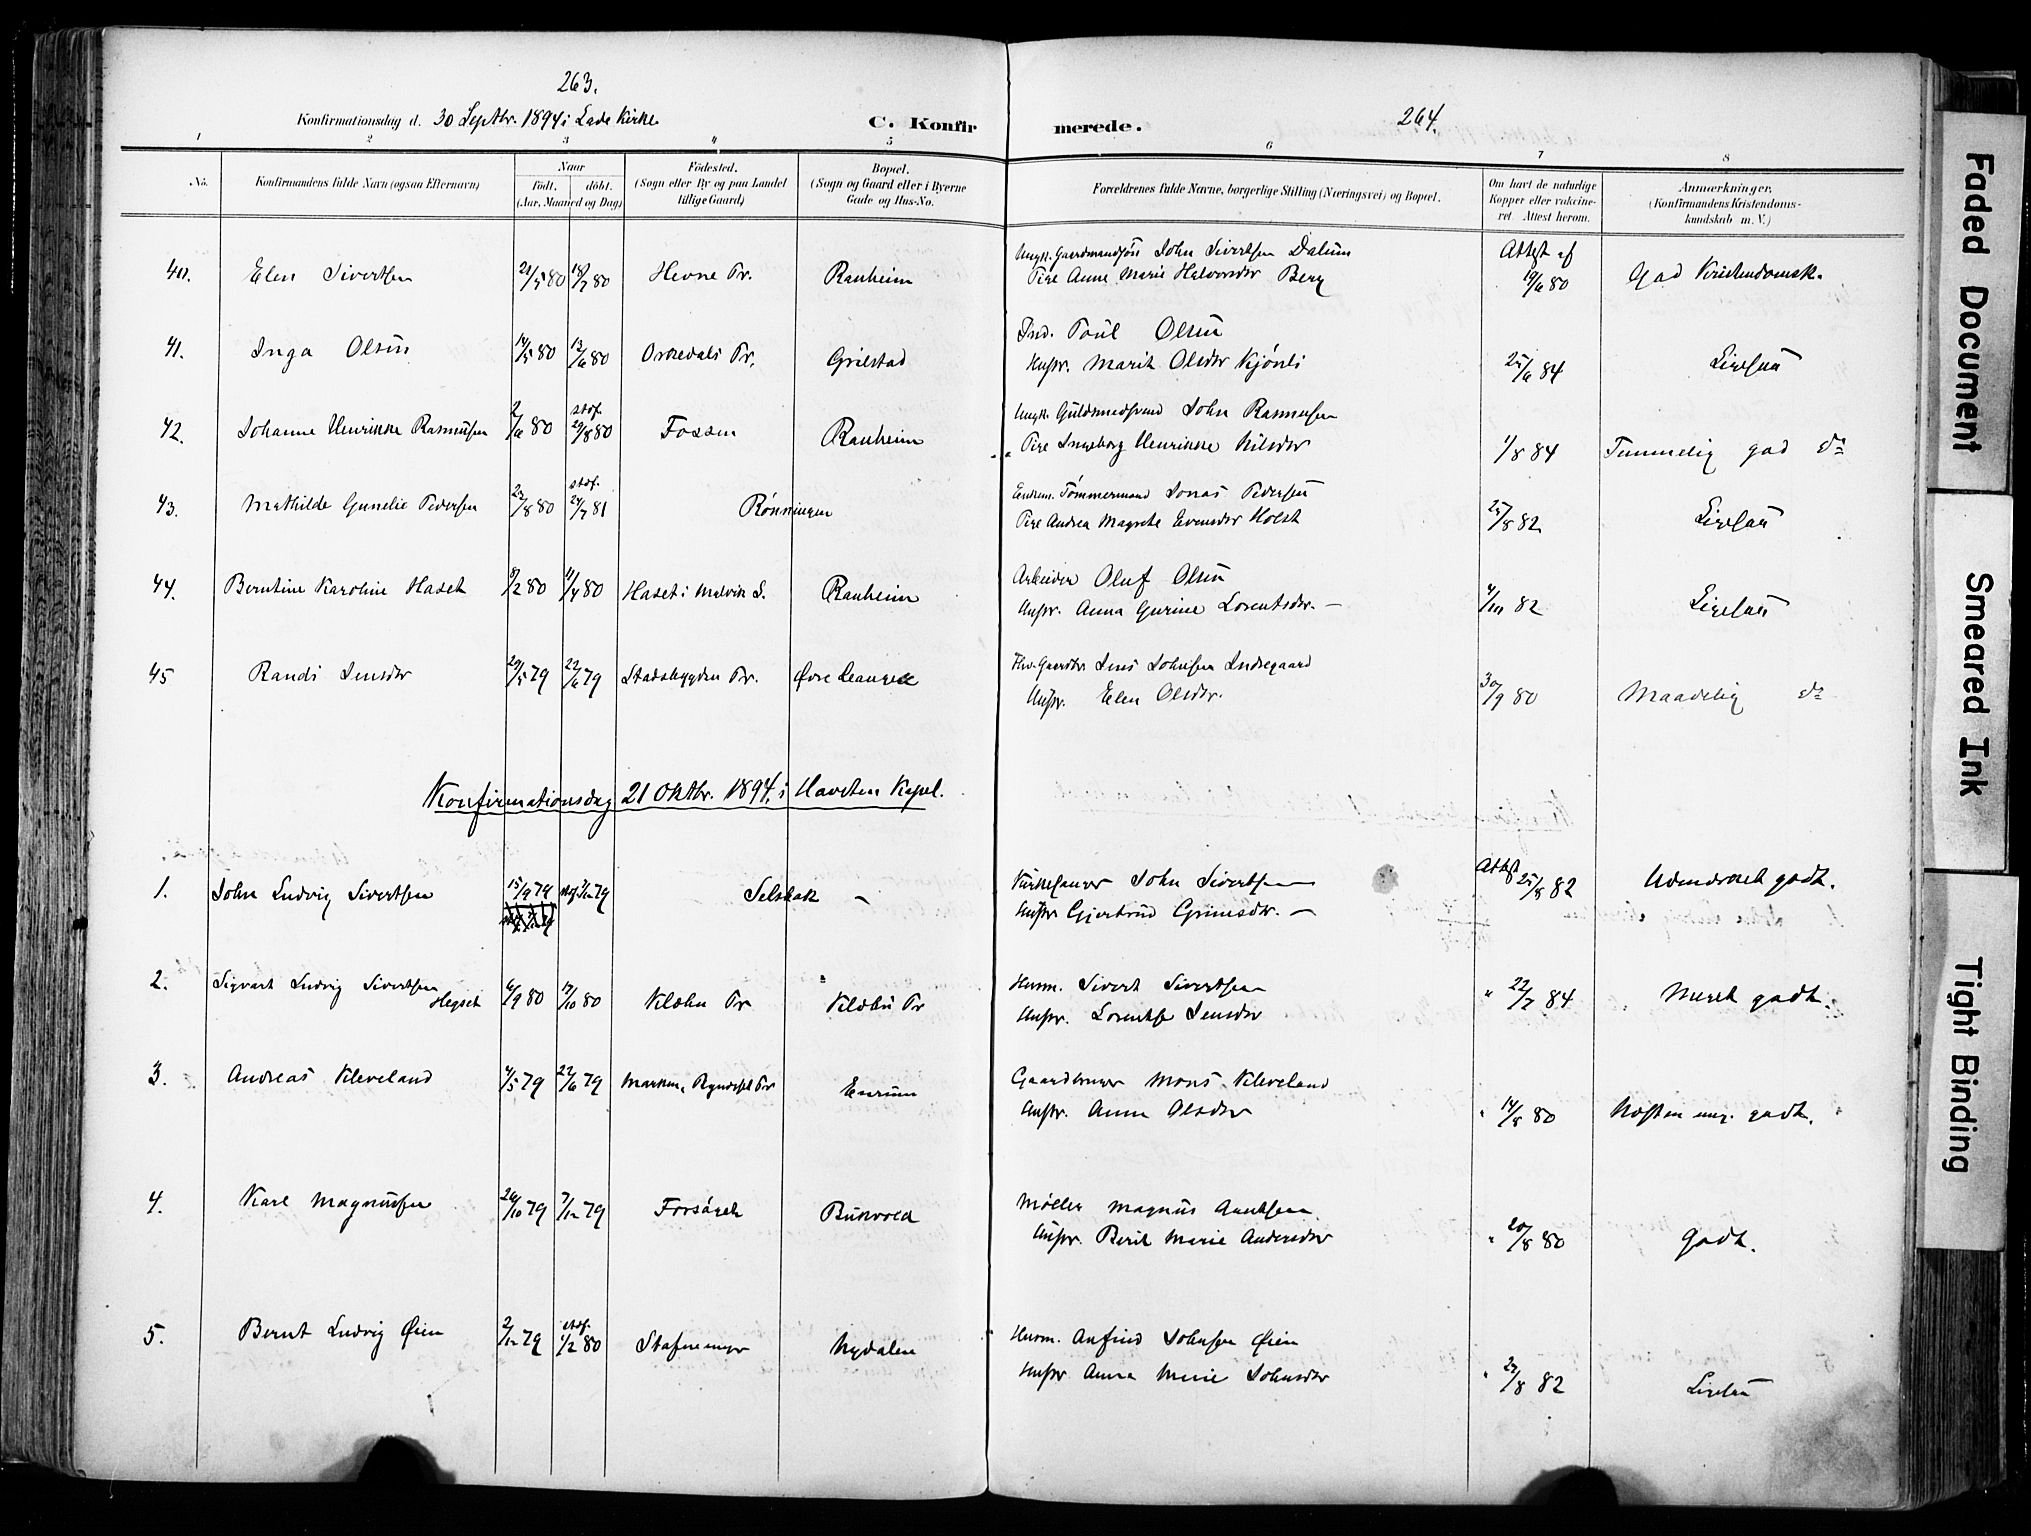 263.
264.
Konfirmationsdag d. 30 Septbr. 1894 i Lade Kirke
C. Konfir
merede.
1 2 3 4 5 6 7 8
No.
Konfirmandens fulde Navn (ogsaa Efternavn)
Naar
født. døbt.
(Aar, Maaned og Dag)
Fødested.
(Sogn eller By og paa Landet
tillige Gaard)
Bopæl.
(Sogn og Gaard eller i Byerne
Gade og Hus-No.
Forældrenes fulde Navne, borgerlige Stilling (Næringsvei) og Bopæl.
Om havt de naturlige
Kopper eller vakcine-
ret. Attest herom.
Anmærkninger.
(Konfirmandens Kristendoms-
kundskab m. V.)
40. Elen Sivertsen 21/5 80 18/7 80 Hevne Pr. Ranheim
Ungk. Gaardmandssøn John Sivertsen Dalum
Pige Anne Marie Halvorsdr Berg
Attest af
19/6 80 God Kristendomsk.
41. Inga Olsen 14/5 80 13/6 80 Orkedals Pr. Grilstad
Ind. Poul Olsen
Hustr. Marit Olsdr Kjønli
25/6 84 Ligesaa
42. Johanne Henrikke Rasmusen 2/6 80 stof. 29/8 80 Fossen Ranheim
Ungk. Guldsmedsvend John Rasmusen
Pige Ingeborg Henrikke Nilsdr
1/8 84 Temmelig god do
43. Mathilde Gunelie Pedersen 23/8 80 stof. 24/7 81 Rønningen
Enkem. Tømmermand Jonas Pedersen
Pige Andrea Magrete Evensdr Holst
25/8 82 Ligesaa
44. Berntine Karoline Haset 8/2 80 11/4 80 Haset i Malvik S. Ranheim
Arbeider Oluf Olsen
Hustr. Anna Gurine Lorentsdr. –
4/10 82 Ligesaa
45 Randi Jensdr 20/5 79 22/6 79 Stadsbygden Pr. Øvre
Jens Johnsen Indregaard
Hustr. Elen Olsdr.
30/9 80 Maadelig do
Konfirmationsdag 21 Oktbr. 1894, i Havsten Kapel.
1. John Ludvig Sivertsen 15/9 79 79 Selsbak –
John Sivertsen
Hustr Gjertrud Grimsdr. –
Attest 25/8 82 Udmærket godt.
2. Sigvart Ludvig Sivertsen
Hegset
6/9 80 17/10 80 Klæbu Pr Klæbu Pr
Husm. Sivert Sivertsen
Hustr. Lorentse Jensdr
" 22/7 84 Meget godt.
3. Andreas Kleveland 4/5 79 22/6 79 Pr
Gaardbruger Mons Kleveland
Hustr. Anne Olsdr
" 14/8 80 Næsten meg. godt.
4. Karl Magnusen 26/10 79 7/12 79 Forsøget Bukvold
Møller Magnus Arntsen
Hustr. Berit Marie Andersdr
" 20/8 80 Godt.
5. Bernt Ludvig Øien 2/12 79 stof. 1/2 80 Stafnemyr Nydalen
Husm. Anfind Johnsen Øien
Hustr Anna Marie Johnsdr
" 27/8 82 Ligesaa
Faded Document
Smeared Ink
Tight Binding